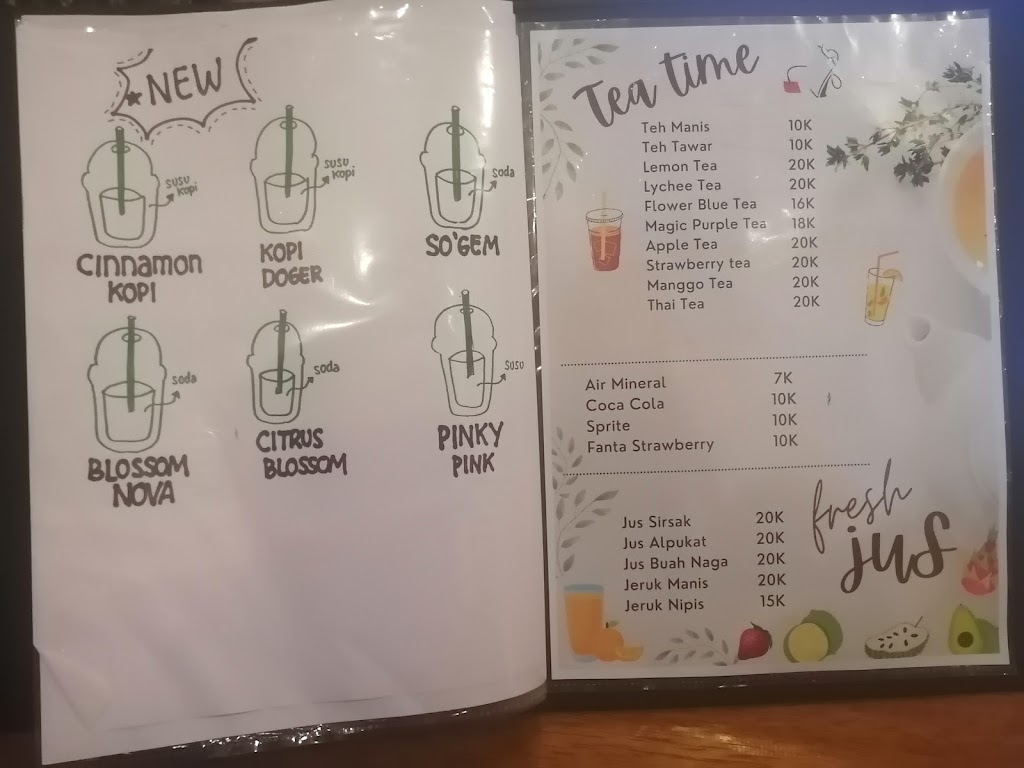 NEW
susu
kopi
Cinnamon
KOPI
susu
kopi
KOPI
DOGER
soda
SO'GEM
soda
BLOSSOM
NOVA
soda
CITRUS
BLOSSOM
susu
PINKY
PINK
Tea time
Teh Manis 10K
Teh Tawar 10K
Lemon Tea 20K
Lychee Tea 20K
Flower Blue Tea 16K
Magic Purple Tea 18K
Apple Tea 20K
Strawberry tea 20K
Manggo Tea 20K
Thai Tea 20K
Air Mineral 7K
Coca Cola 10K
Sprite 10K
Fanta Strawberry 10K
fresh
jus
Jus Sirsak 20K
Jus Alpukat 20K
Jus Buah Naga 20K
Jeruk Manis 20K
Jeruk Nipis 15K